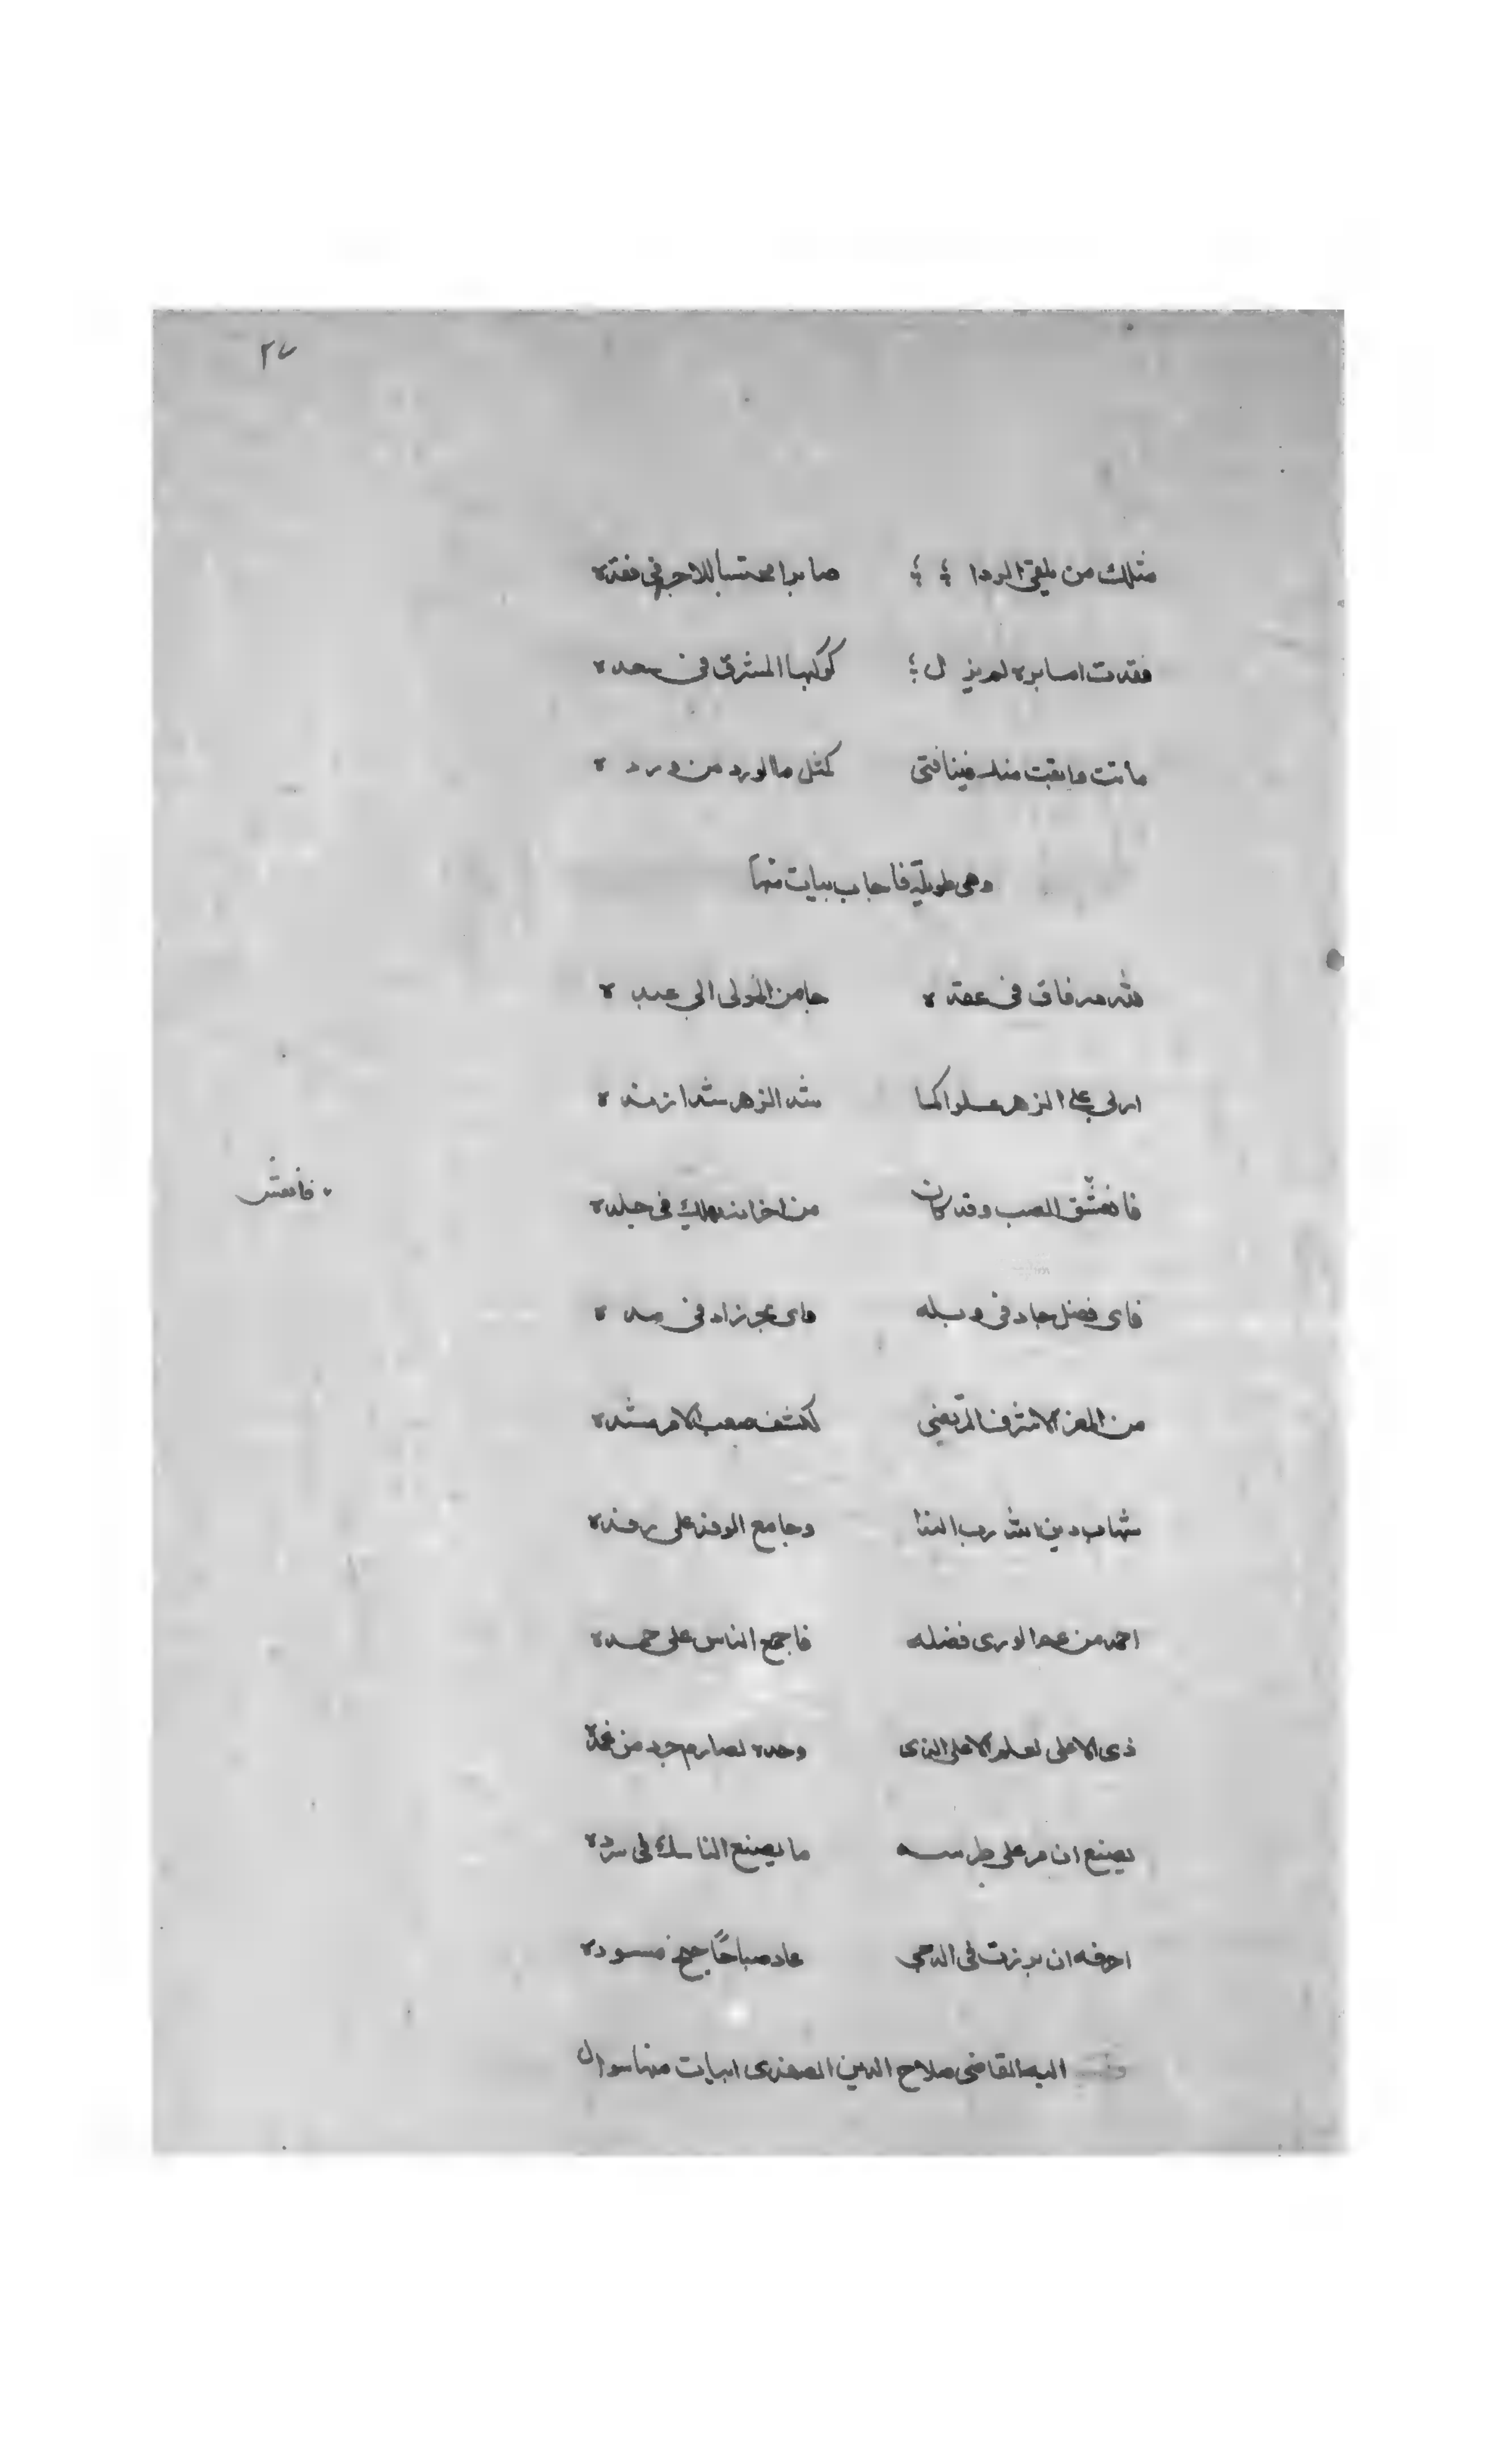 ٢٧
مثلك من يلقى الردا صابرا محتسبا للاجر فى فقده
فقدت اما بره لم يزل كوكبها المشرق فى سعده
ماتت وابقت منك فينا فتى كمثل ما الورد من ورده
وهى طويلة فاجاب ببيات منها
لله در فاق فى عقده جا من المولى الى عبده
اربى على الزهر علوا كما شد الزهر شدا زنده
فانعش الصب وقد كان من احزانه يهلك فى جلده
فانعش
فاى فضل جاد فى وبله واى بحر زاد فى مده
من المعز الاشرف المرتضى لكشف صعب الامر مشده
شهاب دين الله رب الندا وجامع الوفد على رفده
احمد من عم الورى فضله فاجمع الناس على حمده
ذى الاعلى لعلم الاعلى الذى وحده لصارم جرد من غمده
يصنع ان مر على طرسه ما يصنع الناسك فى سرده
احرفه ان برزت فى الدجى عاد صباحًا جنح مسوده
اليه القاضى صلاح الدين الصفدى ابيات منها سوال